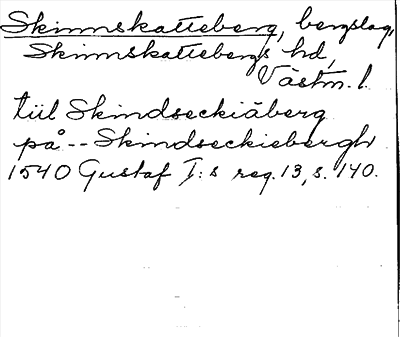 Skinnskatteberg, bergslag,
Skinnskattebergs hd,
Västm. l.
tiil Skindseckiäberg
på -- Skindseckiebergh
1540 Gustaf I:s reg. 13, s. 140.